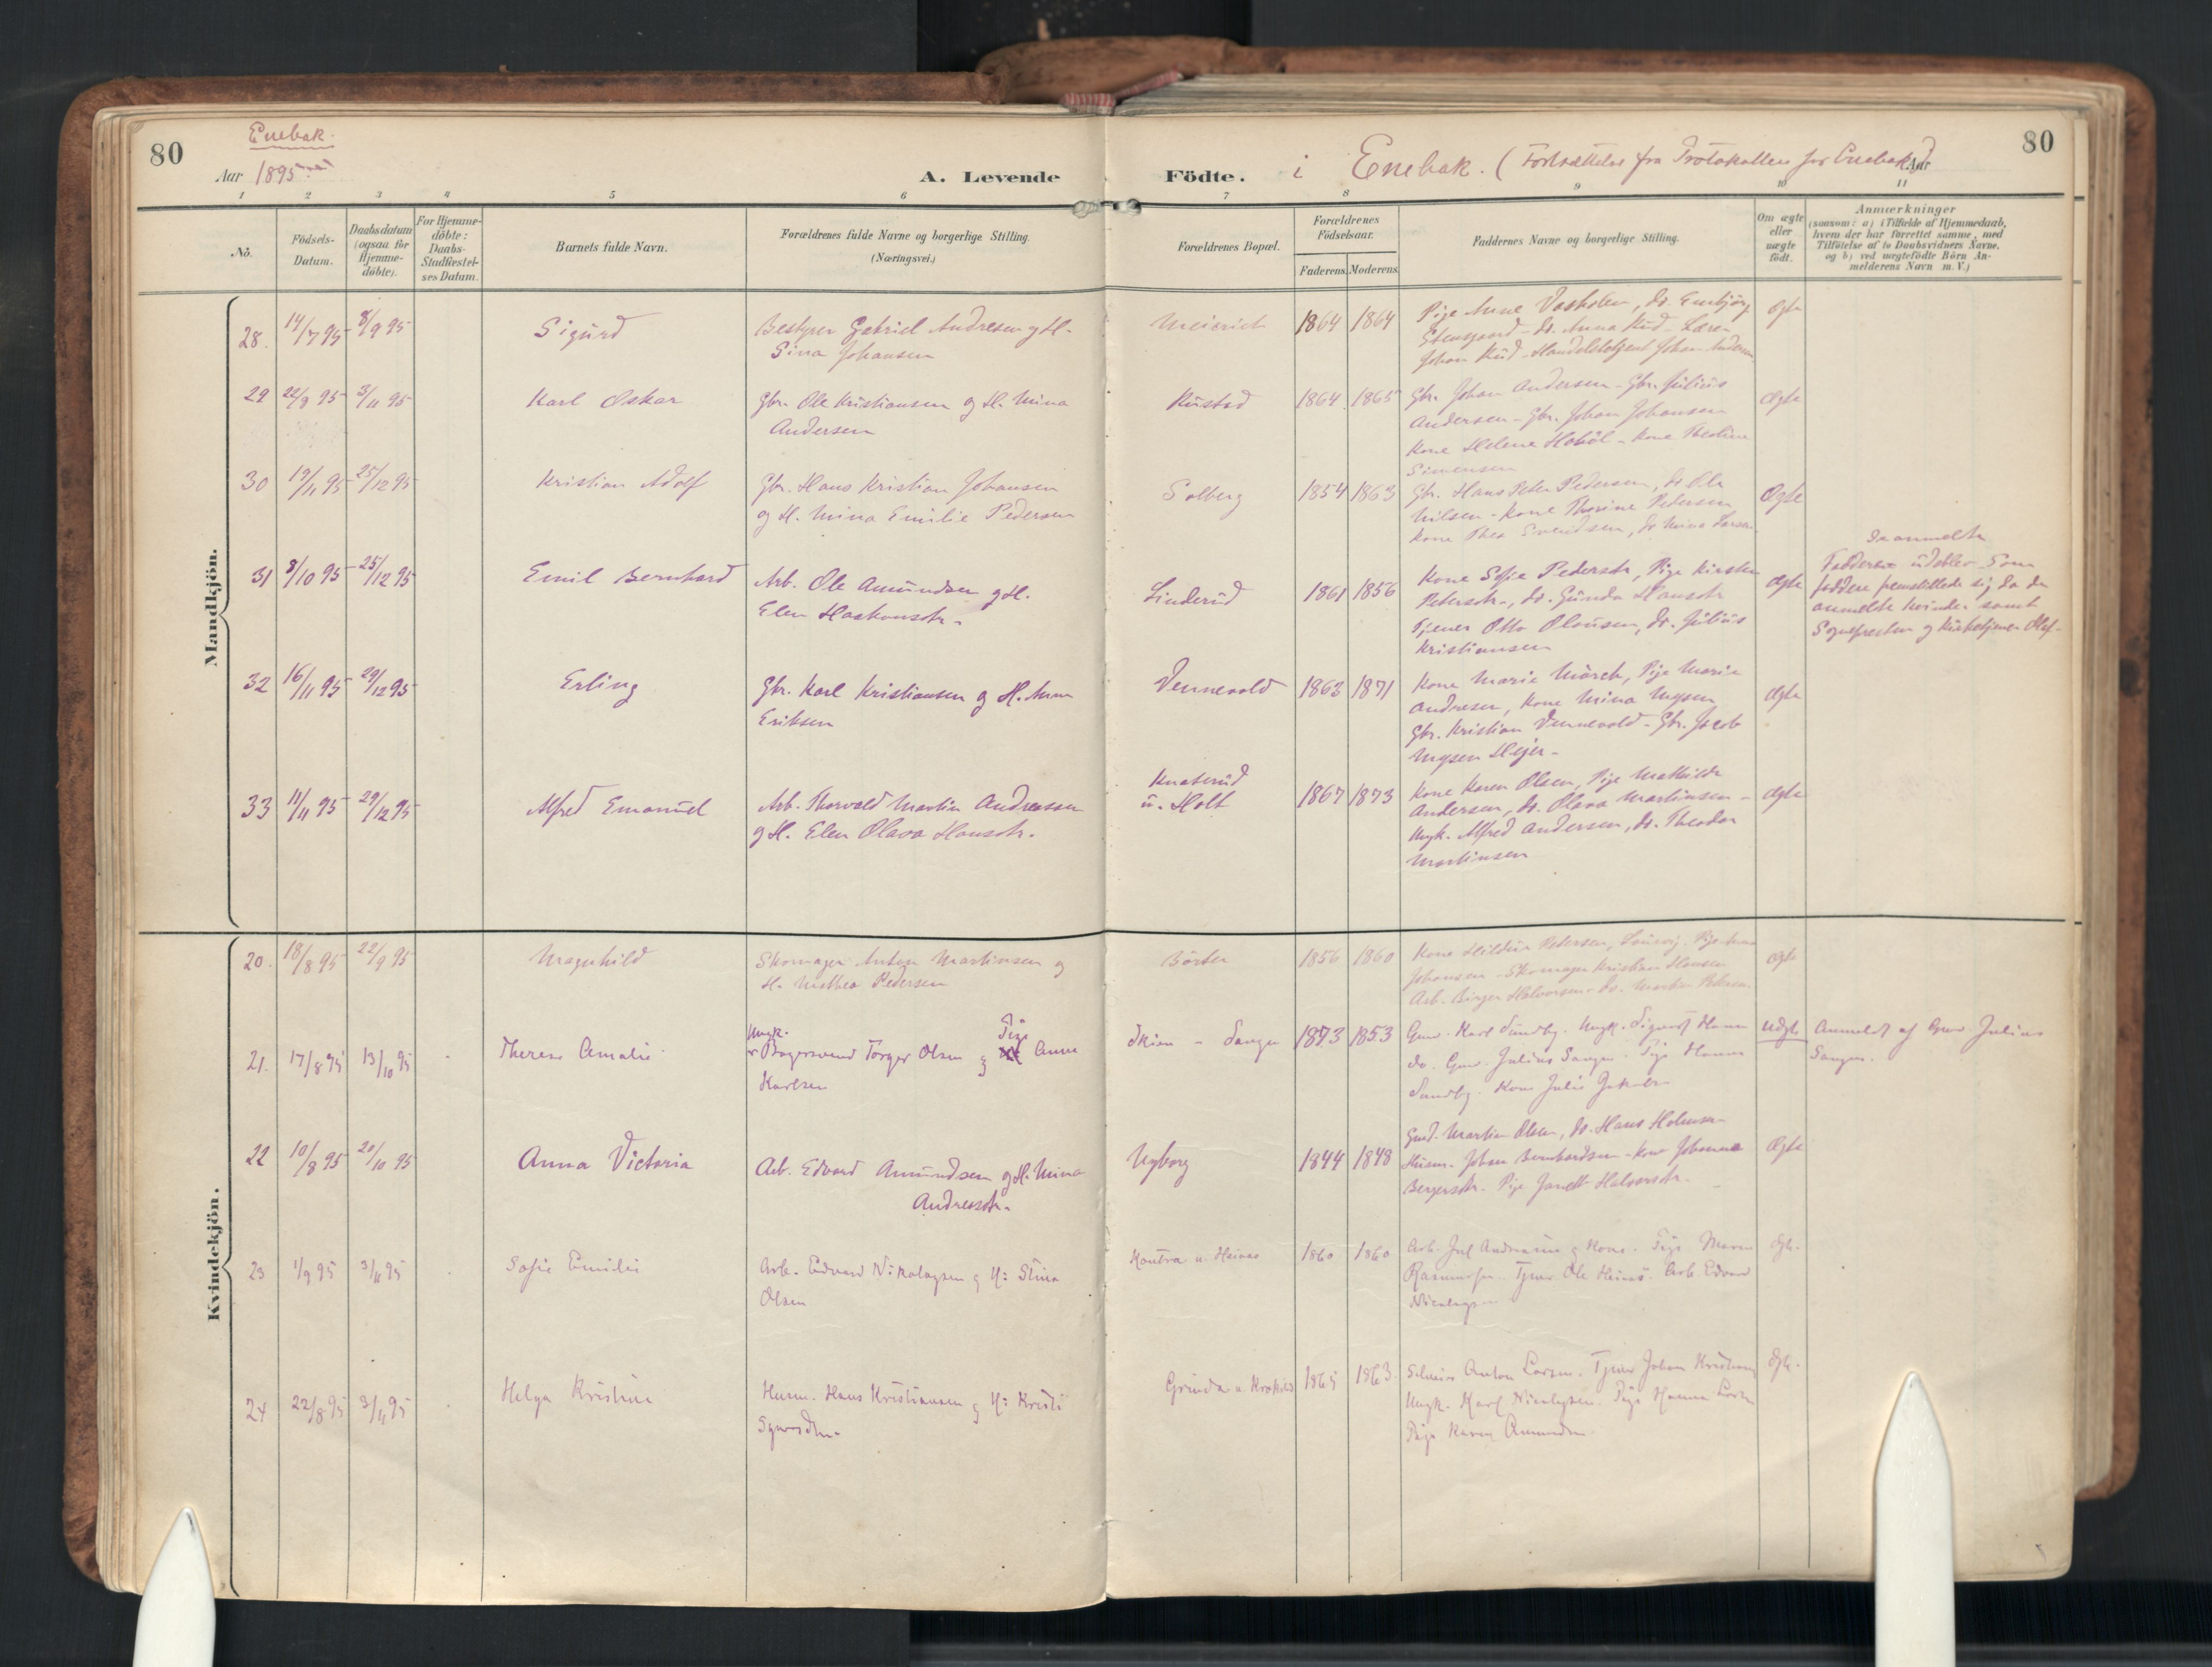 80
Enebak.
Aar 1895
A. Levende
Födte. i Enebak. (Fortsættelse fra Protokollen for Enebak) Aar
80
1 2 3 4 5 6 7 8 9 10 11
No.
Födsels-
Datum.
Daabsdatum
(ogsaa for
Hjemme-
döbte).
For Hjemme-
döbte:
Daabs-
Stadfæstel-
ses Datum.
Barnets fulde Navn.
Forældrenes fulde Navne og borgerlige Stilling.
(Næringsvei.)
Forældrenes Bopæl.
Forældrenes
Födselsaar.
Faderens. Moderens.
Faddernes Navne og borgerlige Stilling.
Om ægte
eller
uægte
födt.
Anmærkninger
(saasom: a) i Tilfælde af Hjemmedaab,
hvem der har forrettet samme, med
Tilföielse af to Daabsvidners Navne,
og b) ved uægtefödte Börn An-
melderens Navn m. V.)
Mandkjön.
28. 14/7 95 8/9 95
Sigurd
Bestyrer Gabriel Andresen og H.
Sina Johansen
Meieriet
1864 1864
Pige Anne Vasholen, do. Embjörg
Stensgaard - do. Anna Rud - Lærer
Johan Rud - Handelsbetjent Johan Andersen
Ægte
29 22/8 95 3/11 95
Karl Oskar
Gbr. Ole Kristiansen og H. Mina
Andersen
Rustad
1864 1865
Gbr. Johan Andersen - Gbr. Julius
Andersen - Gbr. Johan Johansen
Kone Helene Hoböl - Kone Tholine
Simensen
Ægte
30 19/11 95 25/12 95
Kristian Adolf
Gbr. Hans Kristian Johansen
og H. Mina Emilie Pedersen
Solberg
1854 1863
Gbr. Hans Peter Pedersen, do Ole
Nilsen - Kone Thorine Pedersen
Kone Thea Svendsen, do Mina Larsen
Ægte
31 8/10 95 25/12 95
Emil Bernhard
Arb. Ole Amundsen og H.
Elen Haakonsdtr.
Linderud
1861 1856
Kone Sofie Pedersdtr, Pige Kirsten
Petersdtr., do. Gunda Hansdtr
Tjener Otto Olausen, do. Julius
Kristiansen
Ægte
De anmeldte
Faddere udeblev. Som
faddere fremstillede sig da de
anmeldte kvinder samt
Sognepresten og Kirketjener Olaf-
32 16/11 95 29/12 95
Erling
Gbr. Karl Kristiansen og H. Anna
Eriksen
Vennevold
1863 1871
Kone Marie Mörch, Pige Marie
Andresen, Kone Mina Mysen
Gbr. Kristian Vennevold - Gbr. Jacob
Mysen Hejer -
Ægte
33 11/11 95 29/12 95
Alfred Emanuel
Arb. Thorvald Martin Andreassen
og H. Elen Olava Hansdtr.
Knaterud
u. Holt
1867 1873
Kone Karen Olsen, Pige Mathilde
Andersen, do. Olava Martinsen -
Ungk. Alfred Andersen, do. Theodor
Martinsen
Ægte
Kvindekjön.
20. 18/8 95 22/9 95
Magnhild
Skomager Anton Martinsen og
H. Mathea Pedersen
Börter
1856 1860
Kone Hildur Petersen, Pige
Johansen - Skomager Kristian Hansen
Arb. Birger Halvorsen - do. Martin Petersen
Ægte
21. 17/8 95 13/10 95
Therese Amalie
Ungk.
Bagersvend Torger Olsen og Pige Anne
Karlsen
Skien - Sangen
1873 1853
Gmd. Karl Sundby. Ungk. Sigurd Hansen
do. Gmd. Julius Sangen. Pige Hanna
Sundby. Kone Julie Jakobsen
Uægte
Anmeldt af Gmd. Julius
Sangen.
22 10/8 95 20/10 95
Anna Victoria
Arb. Edvard Amundsen og H. Mina
Andreasdtr.
Nyborg
1844 1848
Gmd. Martin Olsen, do. Hans Holmsen
Husm. Johan Bernhardsen - Kone Johanne
Bergersdtr. Pige Janette Halvorsdtr.
Ægte
23 1/9 95 3/11 95
Sofie Emilie
Arb. Edvard Nikolaysen og H: Stina
Olsen
Kontra u. Heinas
1860 1860
Arb. Jul Andresen og Kone. Pige Maren
Rasmussen. Tjener Ole Heinas. Arb. Edvard
Nicolaysen
Ægte.
24 22/8 95 3/11 95
Helga Kristine
Husm. Hans Kristiansen og H: Kristi
Syversdtr.
Grinda u. Kroked
1865 1863.
Anton Larsen. Tjener Johan Kristians
Ungk. Karl Nicolaysen. Pige Hanna Larsen
Pige Karen Amundsen.
Ægte.